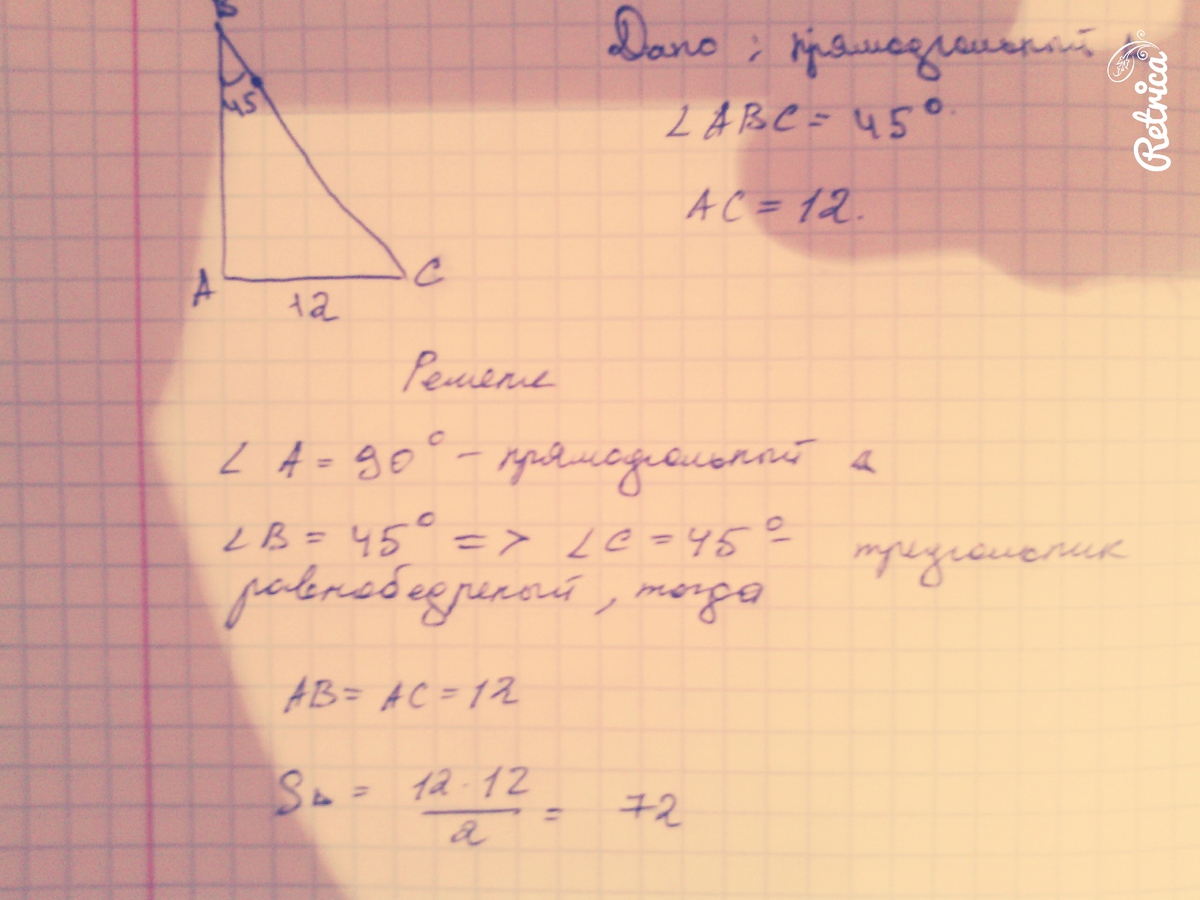 B
45
A
C
12
Дано: прямоугольный
∠ABC = 45°
AC = 12.
Решение
∠ A = 90° – прямоугольный △
∠B = 45° => ∠C = 45° – треугольник
равнобедреный, тогда
AB = AC = 12
S△ = 12·12 / 2 = 72
Retrica